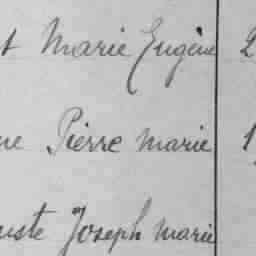 t Marie Eugène 2
ne Pierre marie 1
uste Joseph marie